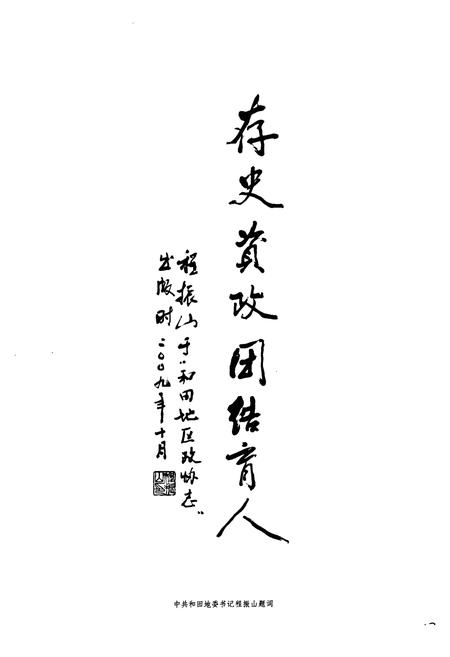 存史资政团结育人
程振山于"和田地区政协志"
出版时 二〇〇九年十月
中共和田地委书记程振山题词